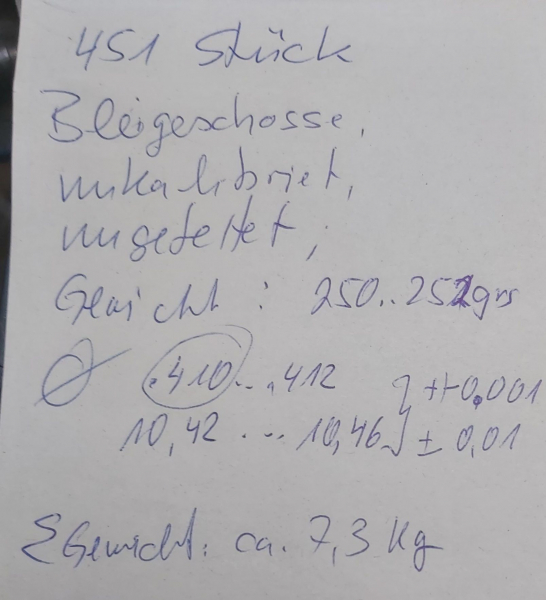 451 Stück
Bleigeschosse,
unkalibriet,
ungefettet,
Gewicht: 250..252grs
∅ .410...412 } +-0,001
10,42 ... 10,46 } ± 0,01
ΣGewicht: ca. 7,3 Kg